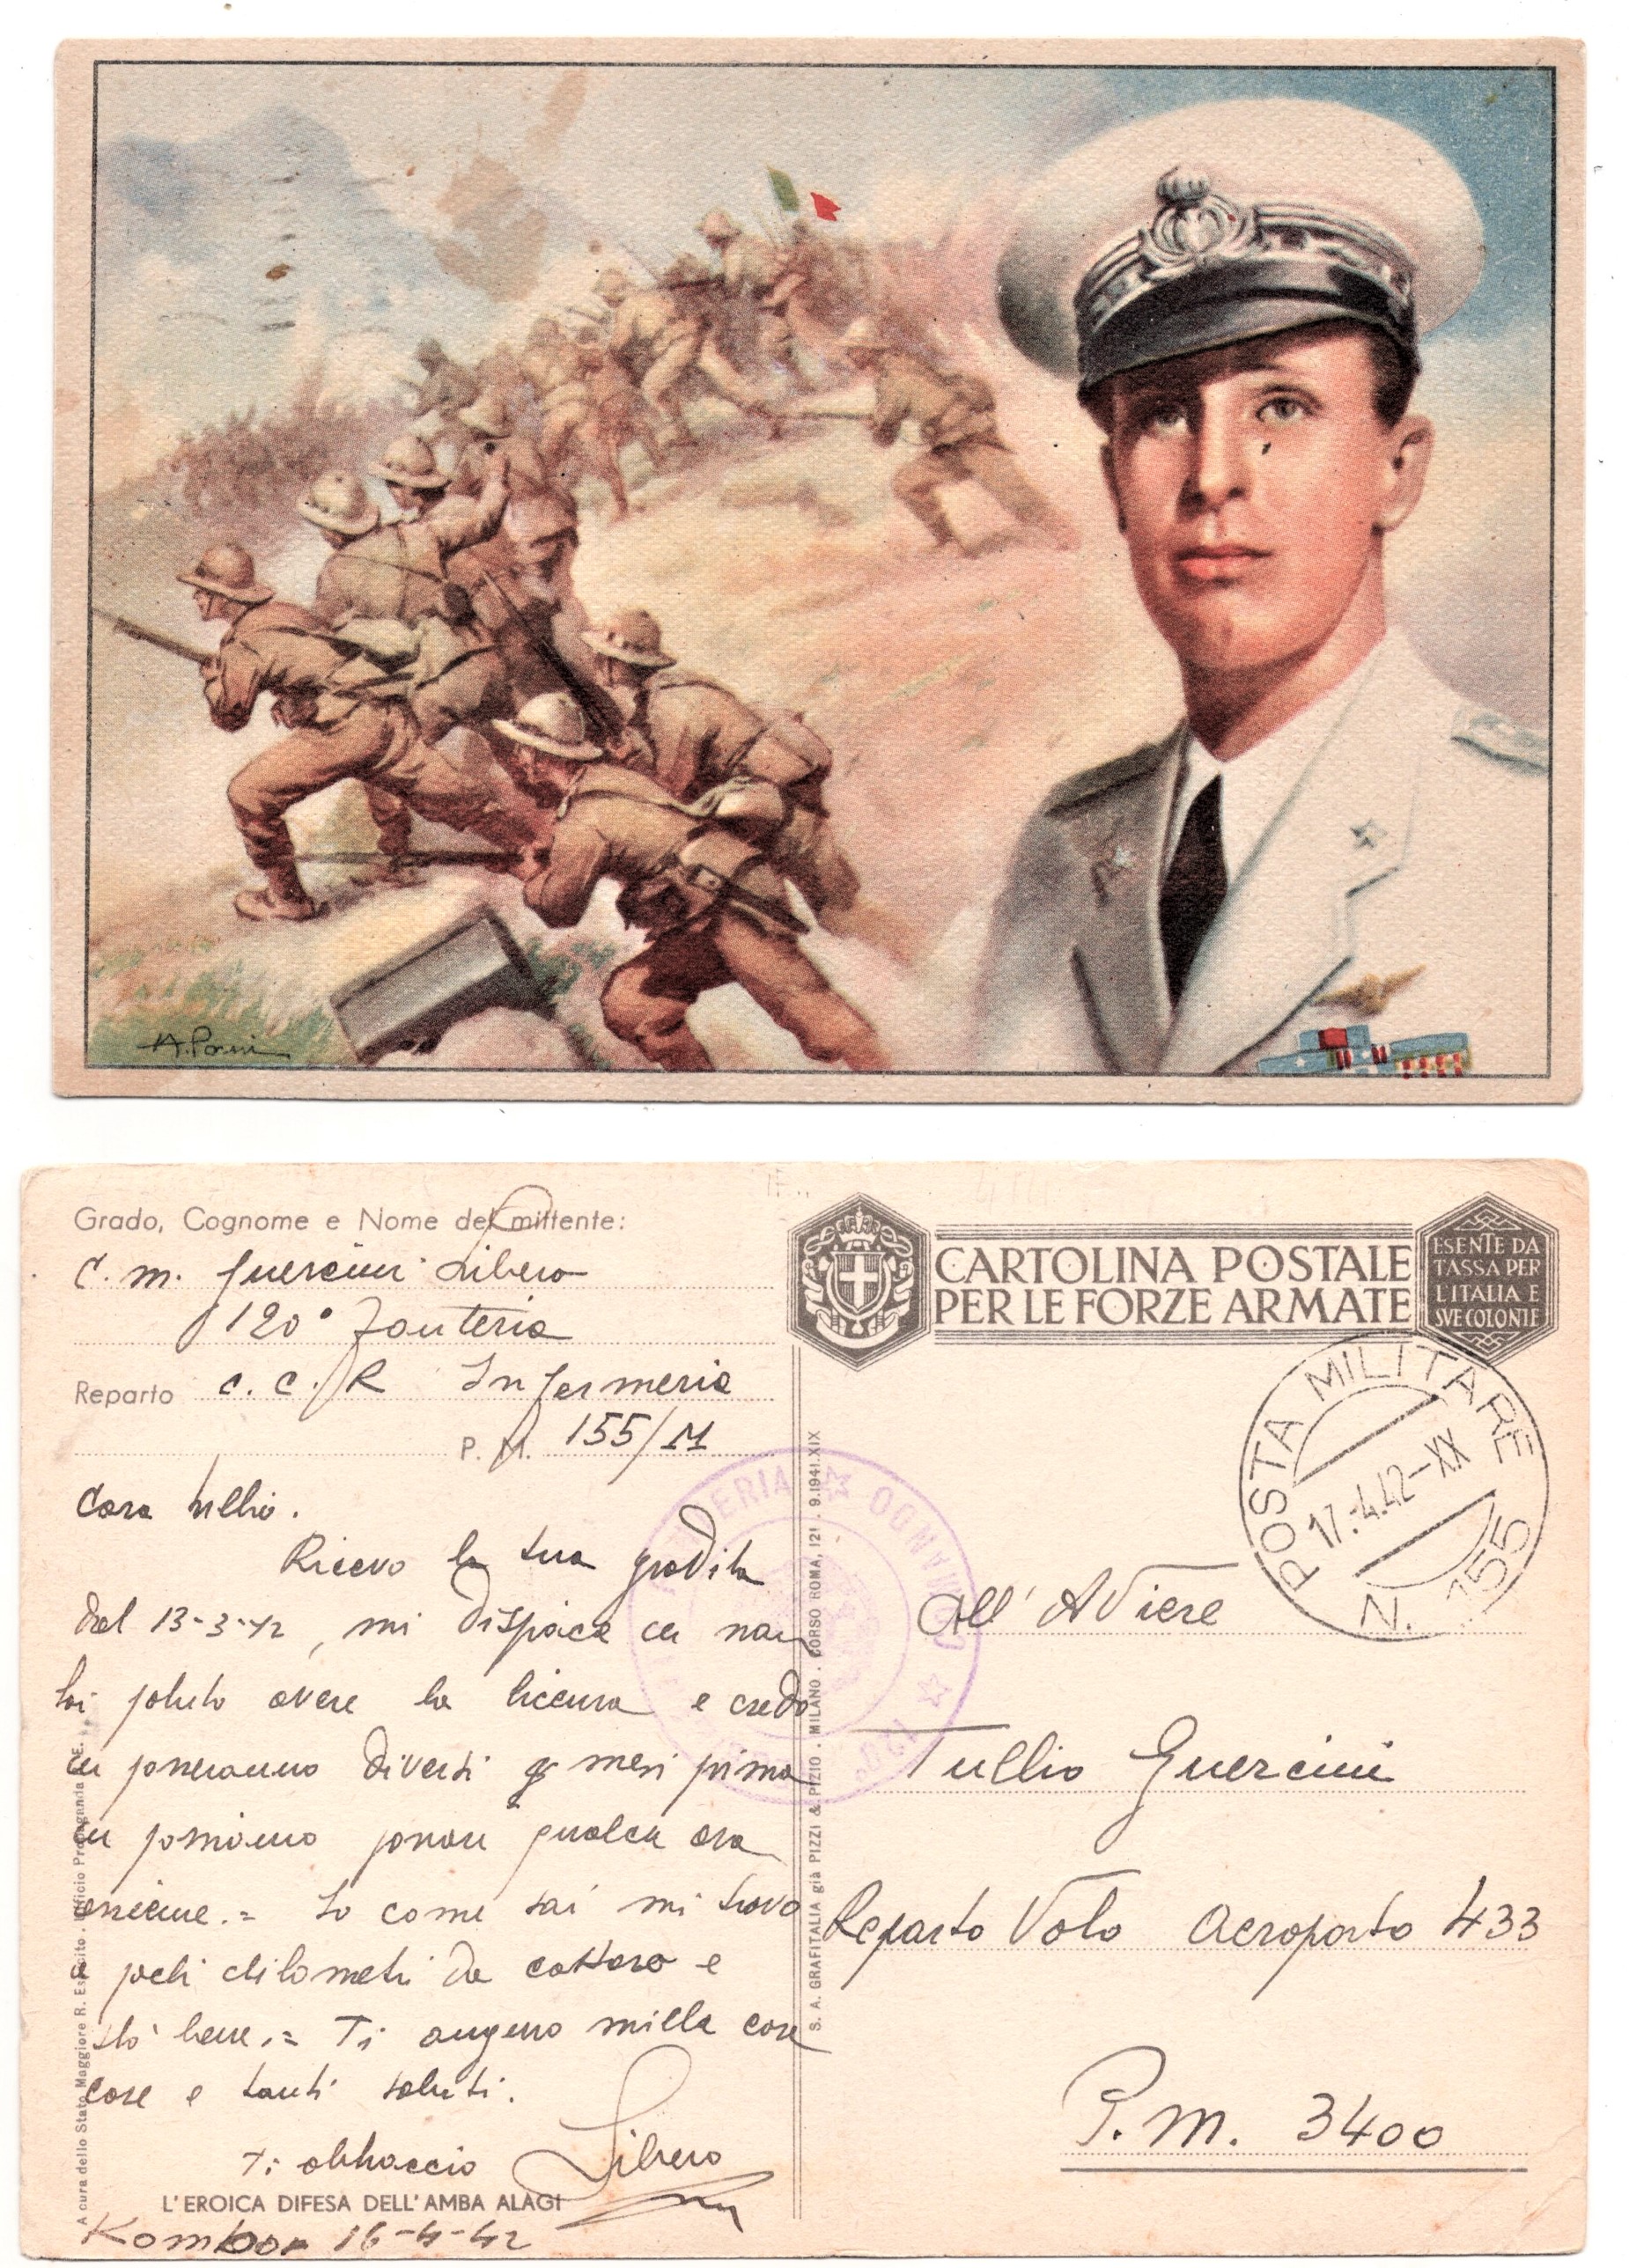 A. Porni
Grado, Cognome e Nome del mittente:
C. m. Guercini Libero
120° Fanteria
Reparto C. C. R Infermeria
P. M. 155/M
Caro Tullio.
Ricevo la tua gradita
del 13-3-42, mi dispiace che non
hai potuto avere la licenza e credo
che passeranno diversi mesi prima
che possiamo passare qualche ora
assieme.= Io come sai mi trovo
a pochi chilometri da cattaro e
stò bene.= Ti auguro mille cose
cose e tanti saluti.
Ti abbraccio Libero
L'EROICA DIFESA DELL'AMBA ALAGI
Kombor 16-4-42
A cura dello Stato Maggiore R. Esercito - Ufficio Propaganda P. E.
S. A. GRAFITALIA già PIZZI & PIZIO - MILANO - CORSO ROMA, 121 - 9.1941.XIX
CARTOLINA POSTALE
PER LE FORZE ARMATE
ESENTE DA
TASSA PER
L'ITALIA E
SVE COLONIE
POSTA MILITARE
17.4.42-XX
N. 155
COMANDO
120°
FANTERIA
All' Aviere
Tullio Guercini
Reparto Volo Aeroporto 433
P.M. 3400